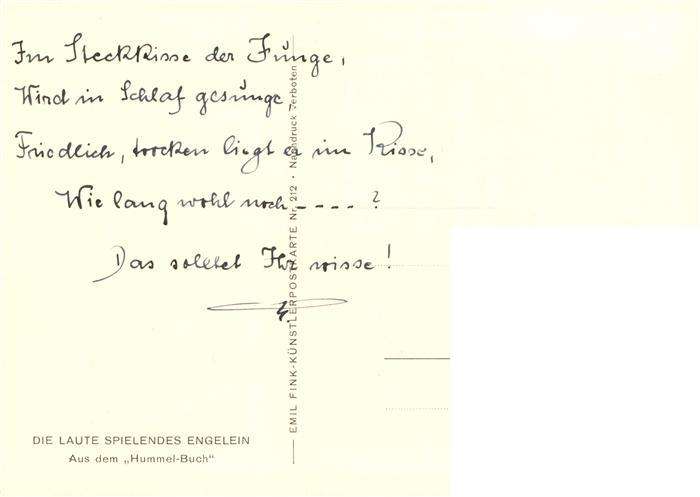 Im Steckkisse der Junge,
Wird in Schlaf gesunge
Friedlich, trocken liegt er im Kisse,
Wie lang wohl noch - - - - ?
Das solltet Ihr wisse!
EMIL FINK-KÜNSTLERPOSTKARTE Nr. 212 • Nachdruck verboten
DIE LAUTE SPIELENDES ENGELEIN
Aus dem „Hummel-Buch“